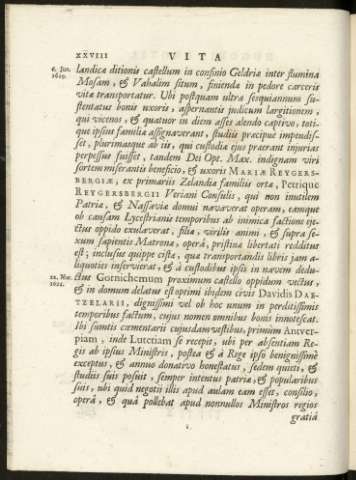 XXVIII VITA
6. Jun. 1619.
landicæ ditionis castellum in confinio Geldriæ inter flumina
Mosam, & Vahalim situm, finienda in pedore carceris
vitæ transportatur. Ubi postquam ultra sesquiannum su-
stentatus bonis uxoris, aspernantis judicum largitionem,
qui vicenos, & quatuor in diem asses alendo captivo, toti-
que ipsius familiæ assignaverant, studiis præcipue impendis-
set, plurimasque ab iis, qui custodiæ ejus præerant injurias
perpessus fuisset, tandem Dei Opt. Max. indignam viri
sortem miserantis beneficio, & uxoris MARIÆ REYGERS-
BERGIÆ, ex primariis Zelandiæ familiis ortæ, Petrique
REYGERSBERGII Veriani Consulis, qui non inutilem
Patriæ, & Nassaviæ domui navaverat operam, eamque
ob causam Lycestrianis temporibus ab inimica factione eje-
ctus oppido exulaverat, filiæ, virilis animi, & supra se-
xum sapientis Matronæ, operâ, pristinæ libertati redditur
est; inclusus quippe cistæ, quæ transportandis libris jam a-
liquoties inservierat, & à custodibus ipsis in navim dedu-
22. Mar. 1621.
ctus Gornichemum proximum castello oppidum vectus,
& in domum delatus est optimi ibidem civis Davidis DAE-
TZELARII, dignissimi vel ob hoc unum in perditissimis
temporibus factum, cujus nomen omnibus bonis innotescat.
Ibi sumtis cæmentarii cujusdam vestibus, primùm Antver-
piam, inde Lutetiam se recepit, ubi per absentiam Re-
gis ab ipsius Ministris, postea & à Rege ipso benignissimè
exceptus, & annuo donativo honestatus, sedem quieti, &
studiis suis posuit, semper intentus patriæ, & popularibus
suis, ubi quid negotii illis apud aulam eam esset, consilio,
operâ, & quâ pollebat apud nonnullos Ministros regios
gratiâ